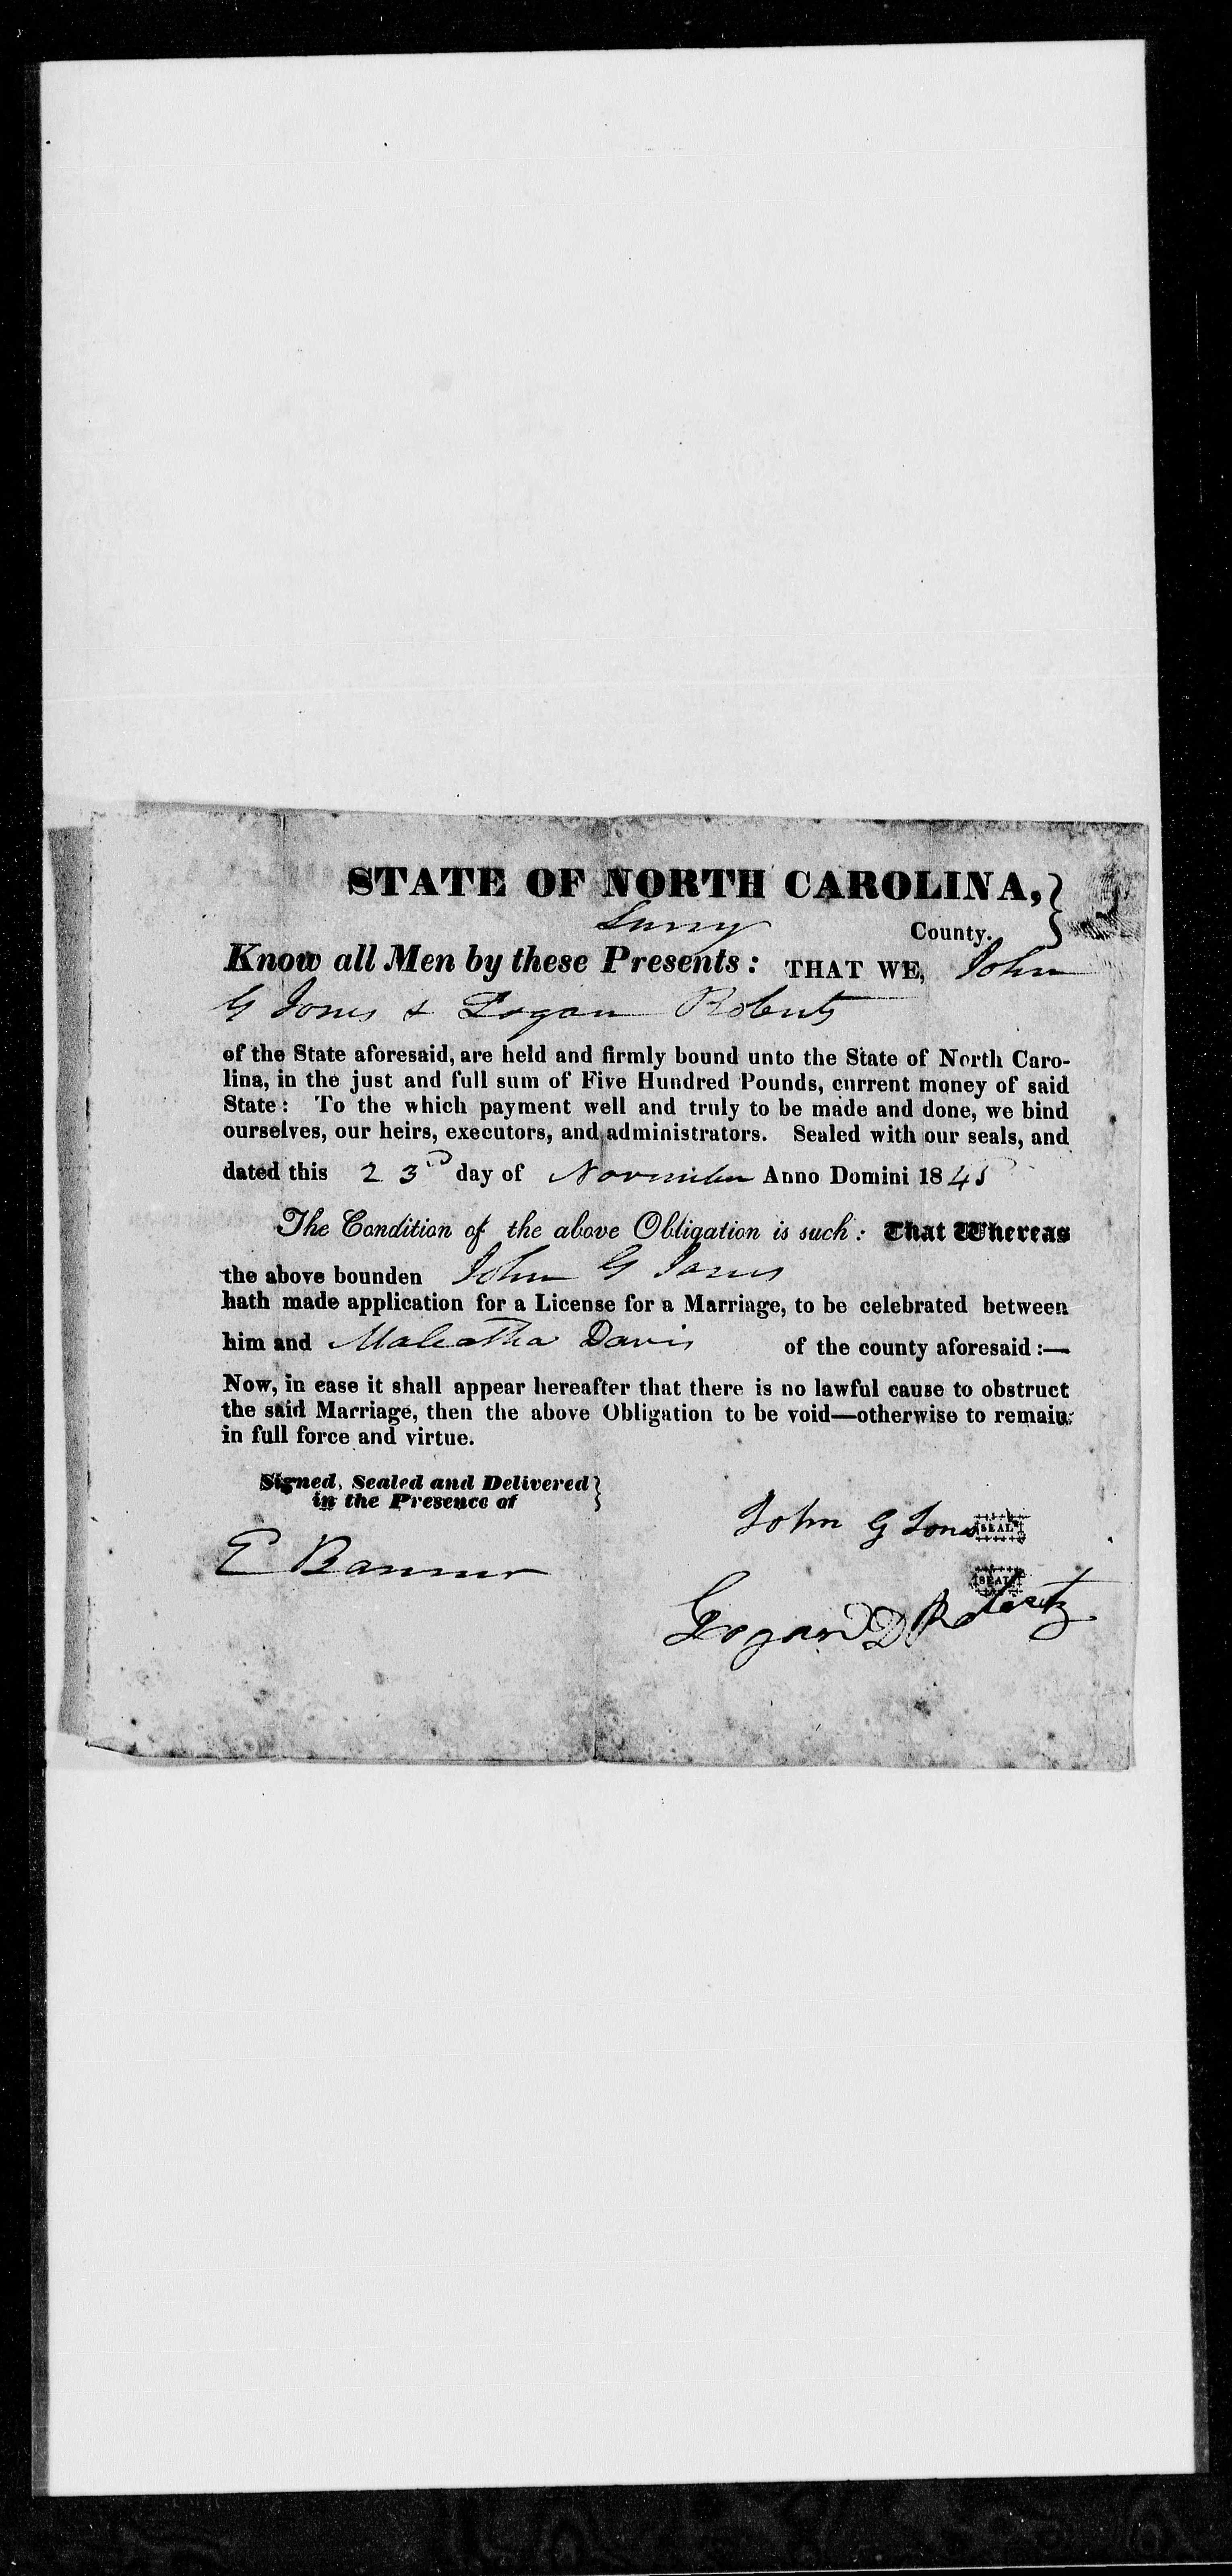 STATE OF NORTH CAROLINA,
Surry County.
Know all Men by these Presents: THAT WE, John
G Jones & Logan Roberts
of the State aforesaid, are held and firmly bound unto the State of North Caro-
lina, in the just and full sum of Five Hundred Pounds, current money of said
State: To the which payment well and truly to be made and done, we bind
ourselves, our heirs, executors, and administrators. Sealed with our seals, and
dated this 23d day of November Anno Domini 1845
The Condition of the above Obligation is such: That Whereas
the above bounden John G Jones
hath made application for a License for a Marriage, to be celebrated between
him and Maleatha Davis of the county aforesaid:—
Now, in case it shall appear hereafter that there is no lawful cause to obstruct
the said Marriage, then the above Obligation to be void—otherwise to remain
in full force and virtue.
Signed, Sealed and Delivered
in the Presence of
John G Jones SEAL
E Banner
SEAL
Logan D Roberts